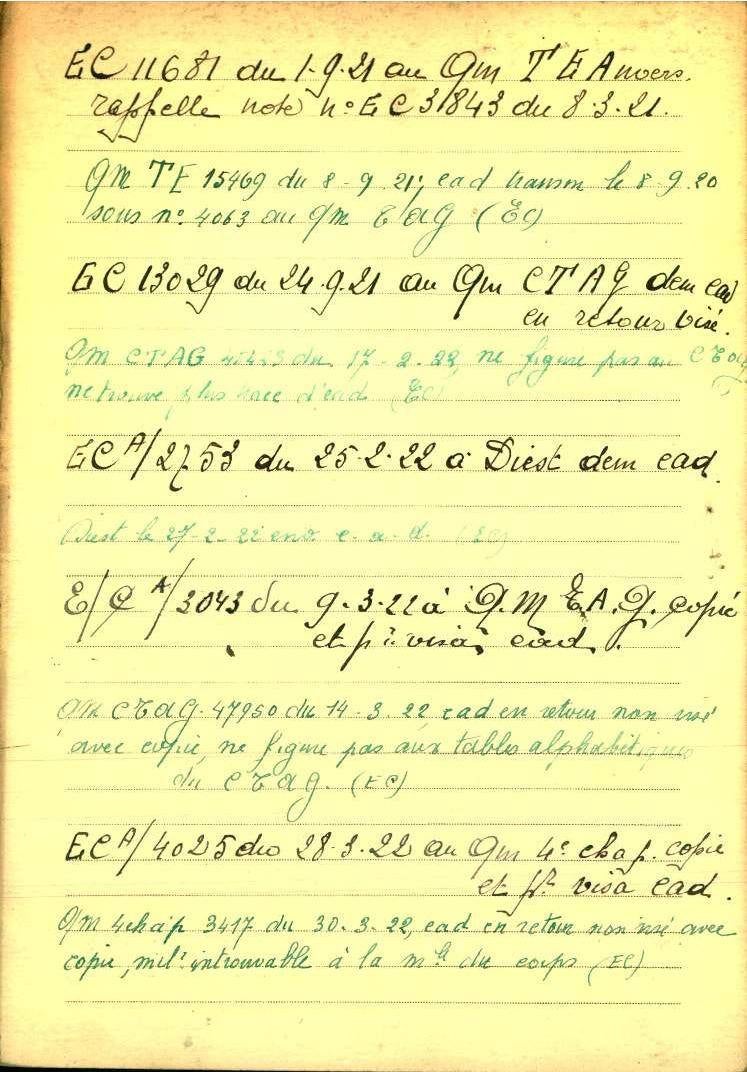 EC 11681 du 1-9-21 au Qm T E Anvers.
rappelle note n° EC 31843 du 8.3.21.
QM TE 15469 du 8-9-21; cad transm le 8-9-20
sous n° 4063 au Qm CTAG (EC)
EC 13029 du 24.9.21 au Qm CTAG dem cad
en retour visé.
Qm CTAG du 17-2-22, ne figure pas au CTAG
ne trouve plus trace d'cad (EC)
EC A/2753 du 25-2-22 à Diest dem cad.
Diest le 27-2-22 env. c-a-d. (EC)
E/C A/3043 du 9-3-22 à Q.M C.A.G. copie
et pr visa, cad.
QM CTAG. 47950 du 14-3-22, cad en retour non visé
avec copie, ne figure pas aux tables alphabétiques
du CTAG. (EC)
EC A/4025 du 28-3-22 au Qm 4e chap. copie
et pr visa cad.
Qm 4 chap 3417 du 30-3-22, cad en retour non visé avec
copie, milre introuvable à la mle du corps (EC)